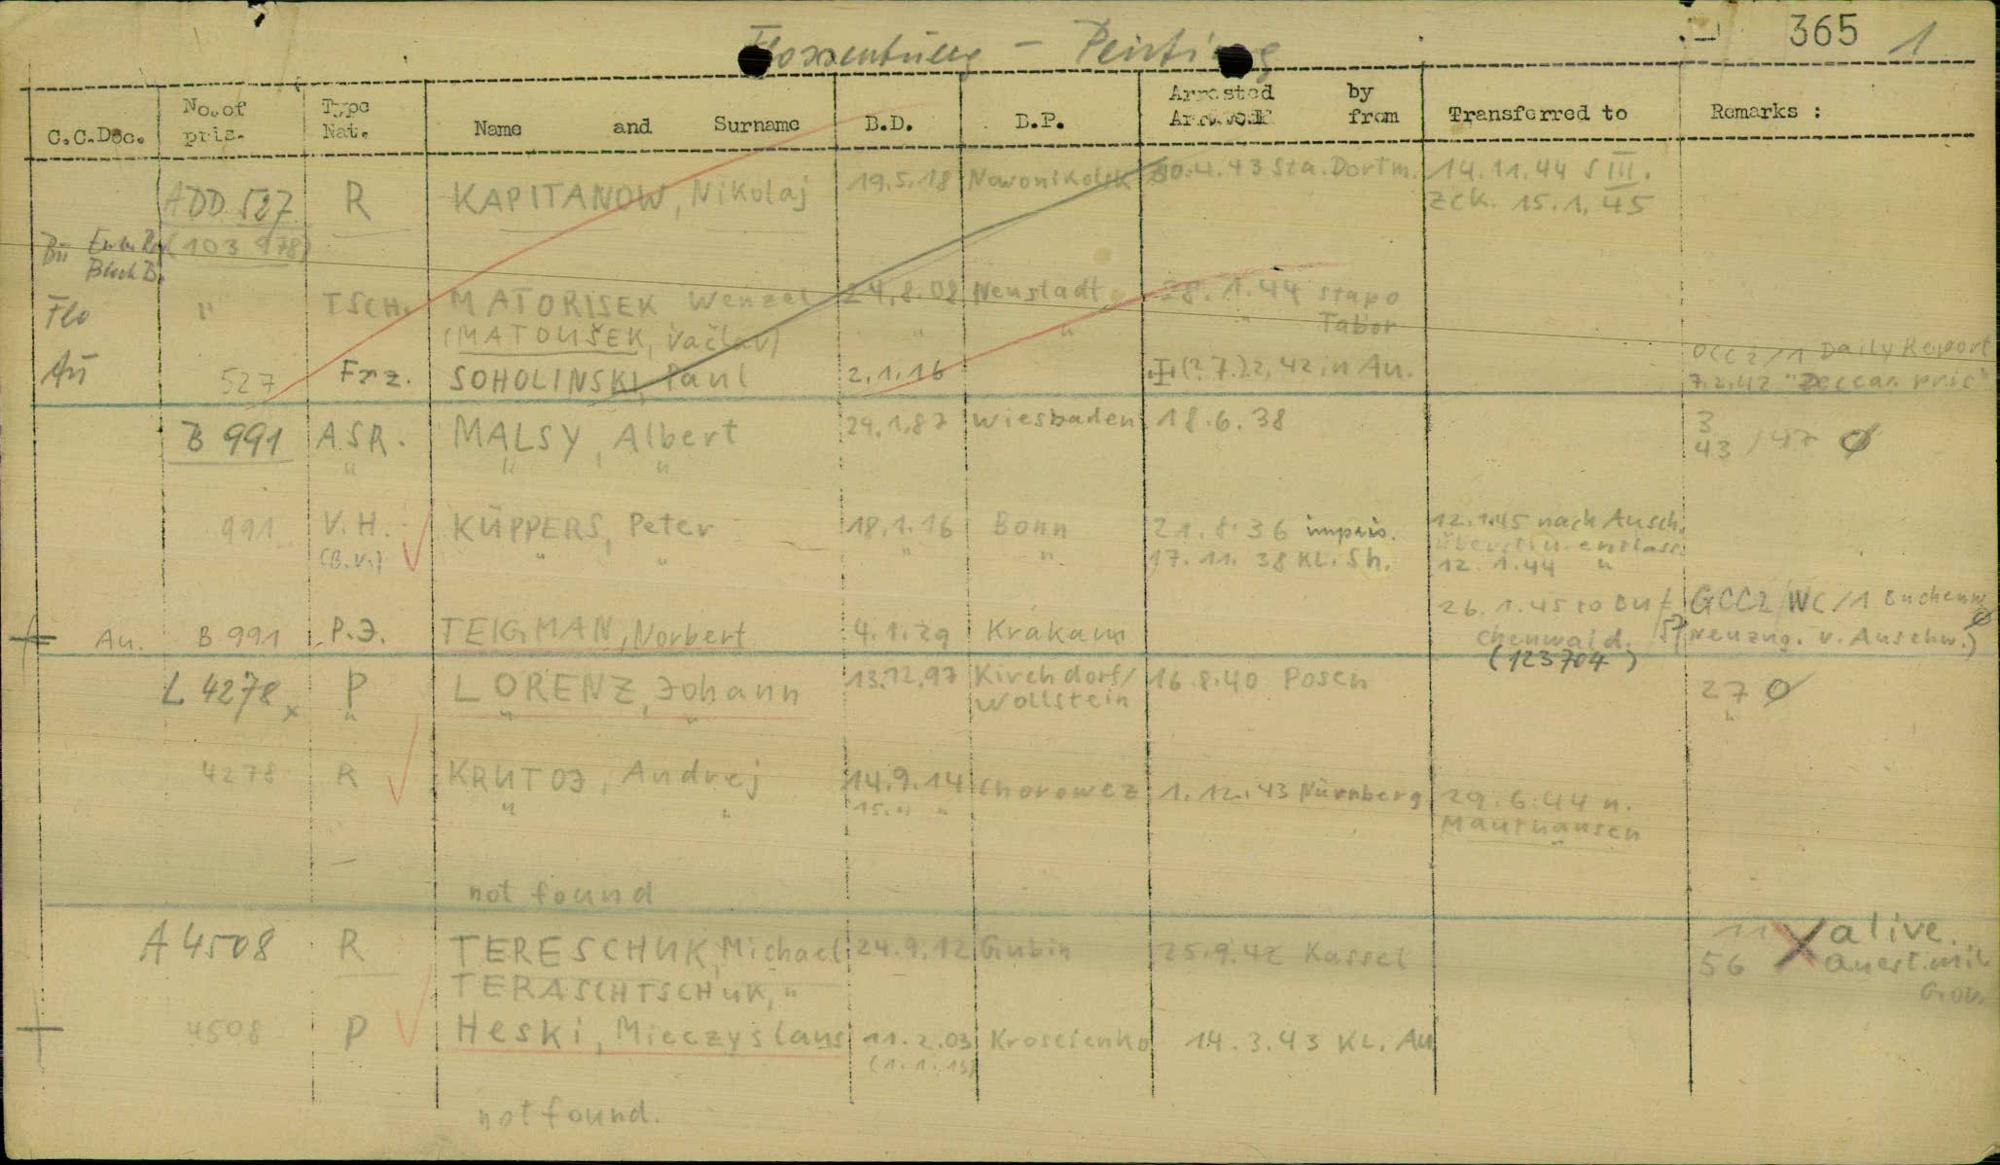 365 1
Flossenbürg - Penting
C.C.Doc. No. of pris. Type Nat. Name and Surname B.D. B.P. Arrested by from Transferred to Remarks :
ADD 527 R KAPITANOW, Nikolaj 19.5.18 Nowonikolsk 30.4.43 Sta. Dortm. 14.11.44 S III.
Zck. 15.1.45
Bu (103 978)
Block
Flo " TSCH. MATORISEK Wenzel 24.8.08 Neustadt 28.1.44 Stapo
(MATOUŠEK, Václav) " " " Tabor
Au 527 Frz. SOHOLINSKI, Paul 2.1.16 (27.)2.42 in Au. OCC2/1 Daily Report
7.2.42 pris"
B 991 A.S.R. MALSY, Albert 29.1.87 Wiesbaden 18.6.38 3
43 /47 Ø
" " "
991 V.H. KÜPPERS, Peter 18.1.16 Bonn 21.8.36 impris. 12.1.45 nach Ausch.
(B.V.) " " " " 17.11.38 KL. Sh. 12.1.44 "
Au. B 991 P.J. TEIGMAN, Norbert 4.1.29 Krakau 26.1.45 to Bu- GCC2/WC/1 Buchenw.
chenwald. Neuzug. v. Auschw.)
(123704)
L 4278 x P LORENZ, Johann 13.12.97 Kirchdorf/ 16.8.40 Posen 27 Ø
Wollstein
" " " "
4278 R KRUTOJ, Andrej 14.9.14 Chorowez 1.12.43 Nürnberg 29.6.44 n.
" " 15. " " Mauthausen
not found
A 4508 R TERESCHUK, Michael 24.9.12 Gubin 25.9.42 Kassel 11 alive.
56
TERASCHTSCHUK, " Gov.
4508 P Heski, Mieczyslaus 11.2.03 Kroscienko 14.3.43 KL. Au
(1.1.13)
not found.